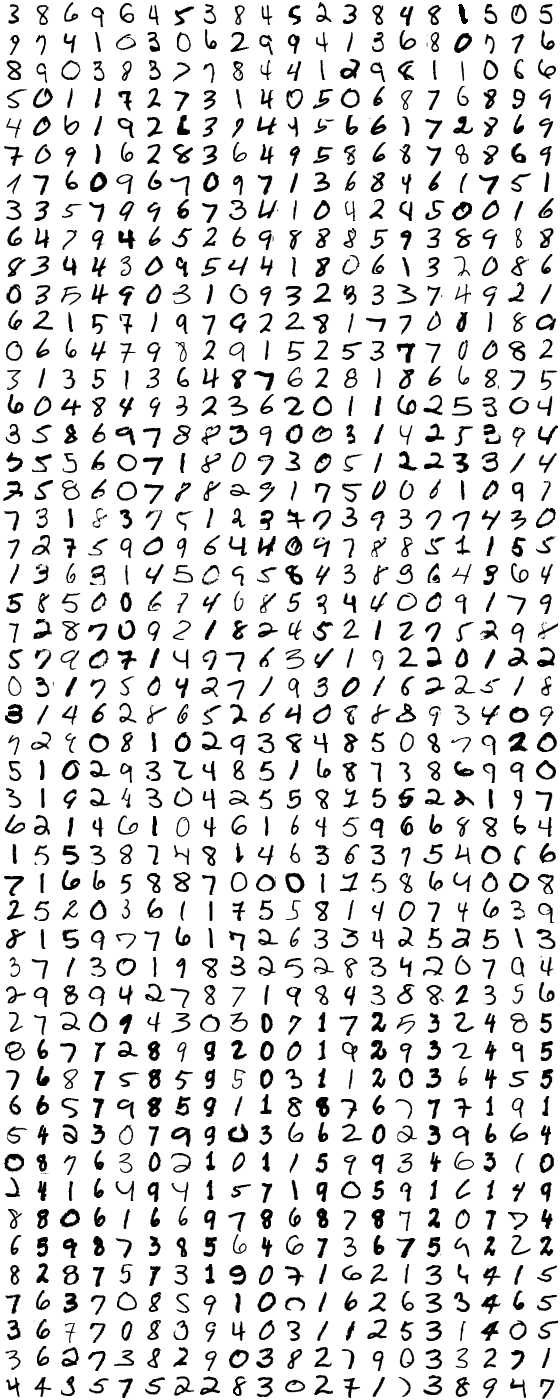 3 8 6 9 6 4 5 3 8 4 5 2 3 8 4 8 1 5 0 5
9 7 4 1 0 3 0 6 2 9 9 4 1 3 6 8 0 7 7 6
8 9 0 3 8 3 7 7 8 4 4 1 2 9 8 1 1 0 6 6
5 0 1 1 7 2 7 3 1 4 0 5 0 6 8 7 6 8 9 9
4 0 6 1 9 2 1 3 9 4 4 5 6 6 1 7 2 8 6 9
7 0 9 1 6 2 8 3 6 4 9 5 8 6 8 7 8 8 6 9
1 7 6 0 9 6 7 0 9 7 1 3 6 8 4 6 1 7 5 1
3 3 5 7 9 9 6 7 3 4 1 0 4 2 4 5 0 0 1 6
6 4 7 9 4 6 5 2 6 9 8 8 8 5 9 3 8 9 8 8
8 3 4 4 3 0 9 5 4 4 1 8 0 6 1 3 2 0 8 6
0 3 5 4 9 0 3 1 0 9 3 2 3 3 3 7 4 9 2 1
6 2 1 5 7 1 9 7 9 2 2 8 1 7 7 0 0 1 8 0
0 6 6 4 7 9 8 2 9 1 5 2 5 3 7 7 0 0 8 2
3 1 3 5 1 3 6 4 8 7 6 2 8 1 8 6 6 8 7 5
6 0 4 8 4 9 3 2 3 6 2 0 1 1 6 2 5 3 0 4
3 5 8 6 9 7 8 8 3 9 0 0 3 1 4 2 5 3 9 4
5 5 5 6 0 7 1 8 0 7 3 0 5 1 2 2 3 3 1 4
7 5 8 6 0 7 8 8 2 9 1 7 5 0 0 6 1 0 9 7
7 3 1 8 3 7 5 1 2 3 7 7 3 9 3 7 7 4 3 0
7 2 7 5 9 0 9 6 4 4 0 9 7 8 8 5 1 1 5 5
1 3 6 3 1 4 5 0 9 5 8 4 3 8 3 6 4 3 6 4
5 8 5 0 0 6 7 4 6 8 5 3 4 4 0 0 9 1 7 9
7 2 8 7 0 9 2 1 8 2 4 5 2 1 2 7 5 2 9 8
5 7 9 0 7 1 4 9 7 6 3 4 1 9 2 2 0 1 2 2
0 3 1 7 5 0 4 2 7 1 9 3 0 1 6 2 2 5 1 8
3 1 4 6 2 8 6 5 2 6 4 0 8 8 8 9 3 4 0 9
7 2 9 0 8 1 0 2 9 3 8 4 8 5 0 8 7 9 2 0
5 1 0 2 9 3 2 4 8 5 1 6 8 7 3 8 6 9 9 0
3 1 9 2 4 3 0 4 2 5 5 8 1 5 5 2 2 1 9 7
6 2 1 4 6 1 0 4 6 1 6 4 5 9 6 6 8 8 6 4
1 5 5 3 8 7 4 8 1 4 6 3 6 3 7 5 4 0 6 6
7 1 6 6 5 8 8 7 0 0 0 1 1 5 8 6 4 0 0 8
2 5 2 0 3 6 1 1 7 5 5 8 1 4 0 7 4 6 3 9
8 1 5 9 7 7 6 1 7 2 6 3 3 4 2 5 2 5 1 3
3 7 1 3 0 1 9 8 3 2 5 2 8 3 4 2 0 7 9 4
2 9 8 9 4 2 7 8 7 1 9 8 4 3 8 8 2 3 5 6
2 7 2 0 9 4 3 0 3 0 7 1 7 2 5 3 2 4 8 5
8 6 7 7 2 8 9 9 2 0 0 1 9 2 9 3 2 4 9 5
7 6 8 7 5 8 5 9 5 0 3 1 1 2 0 3 6 4 5 5
6 6 5 7 9 8 5 9 1 1 8 8 7 6 7 7 7 1 9 1
5 4 2 3 0 7 9 9 0 3 6 6 2 0 2 3 9 6 6 4
0 8 7 6 3 0 2 1 0 1 1 5 9 9 3 4 6 3 1 0
2 4 1 6 4 9 4 1 5 7 1 9 0 5 9 1 6 1 4 9
8 8 0 6 1 6 6 9 7 8 6 8 7 8 7 2 0 7 7 4
6 5 9 8 7 3 8 5 6 4 6 7 3 6 7 5 9 2 2 2
8 2 8 7 5 7 3 1 9 0 7 1 6 2 1 3 4 4 1 5
7 6 3 7 0 8 5 9 1 0 0 1 6 2 6 3 3 4 6 5
3 6 7 7 0 8 3 9 4 0 3 1 1 2 5 3 1 4 0 5
3 6 2 7 3 8 2 9 0 3 8 2 7 9 0 3 3 2 7 1
4 4 3 5 7 5 2 2 8 3 0 2 7 1 7 3 8 9 4 7